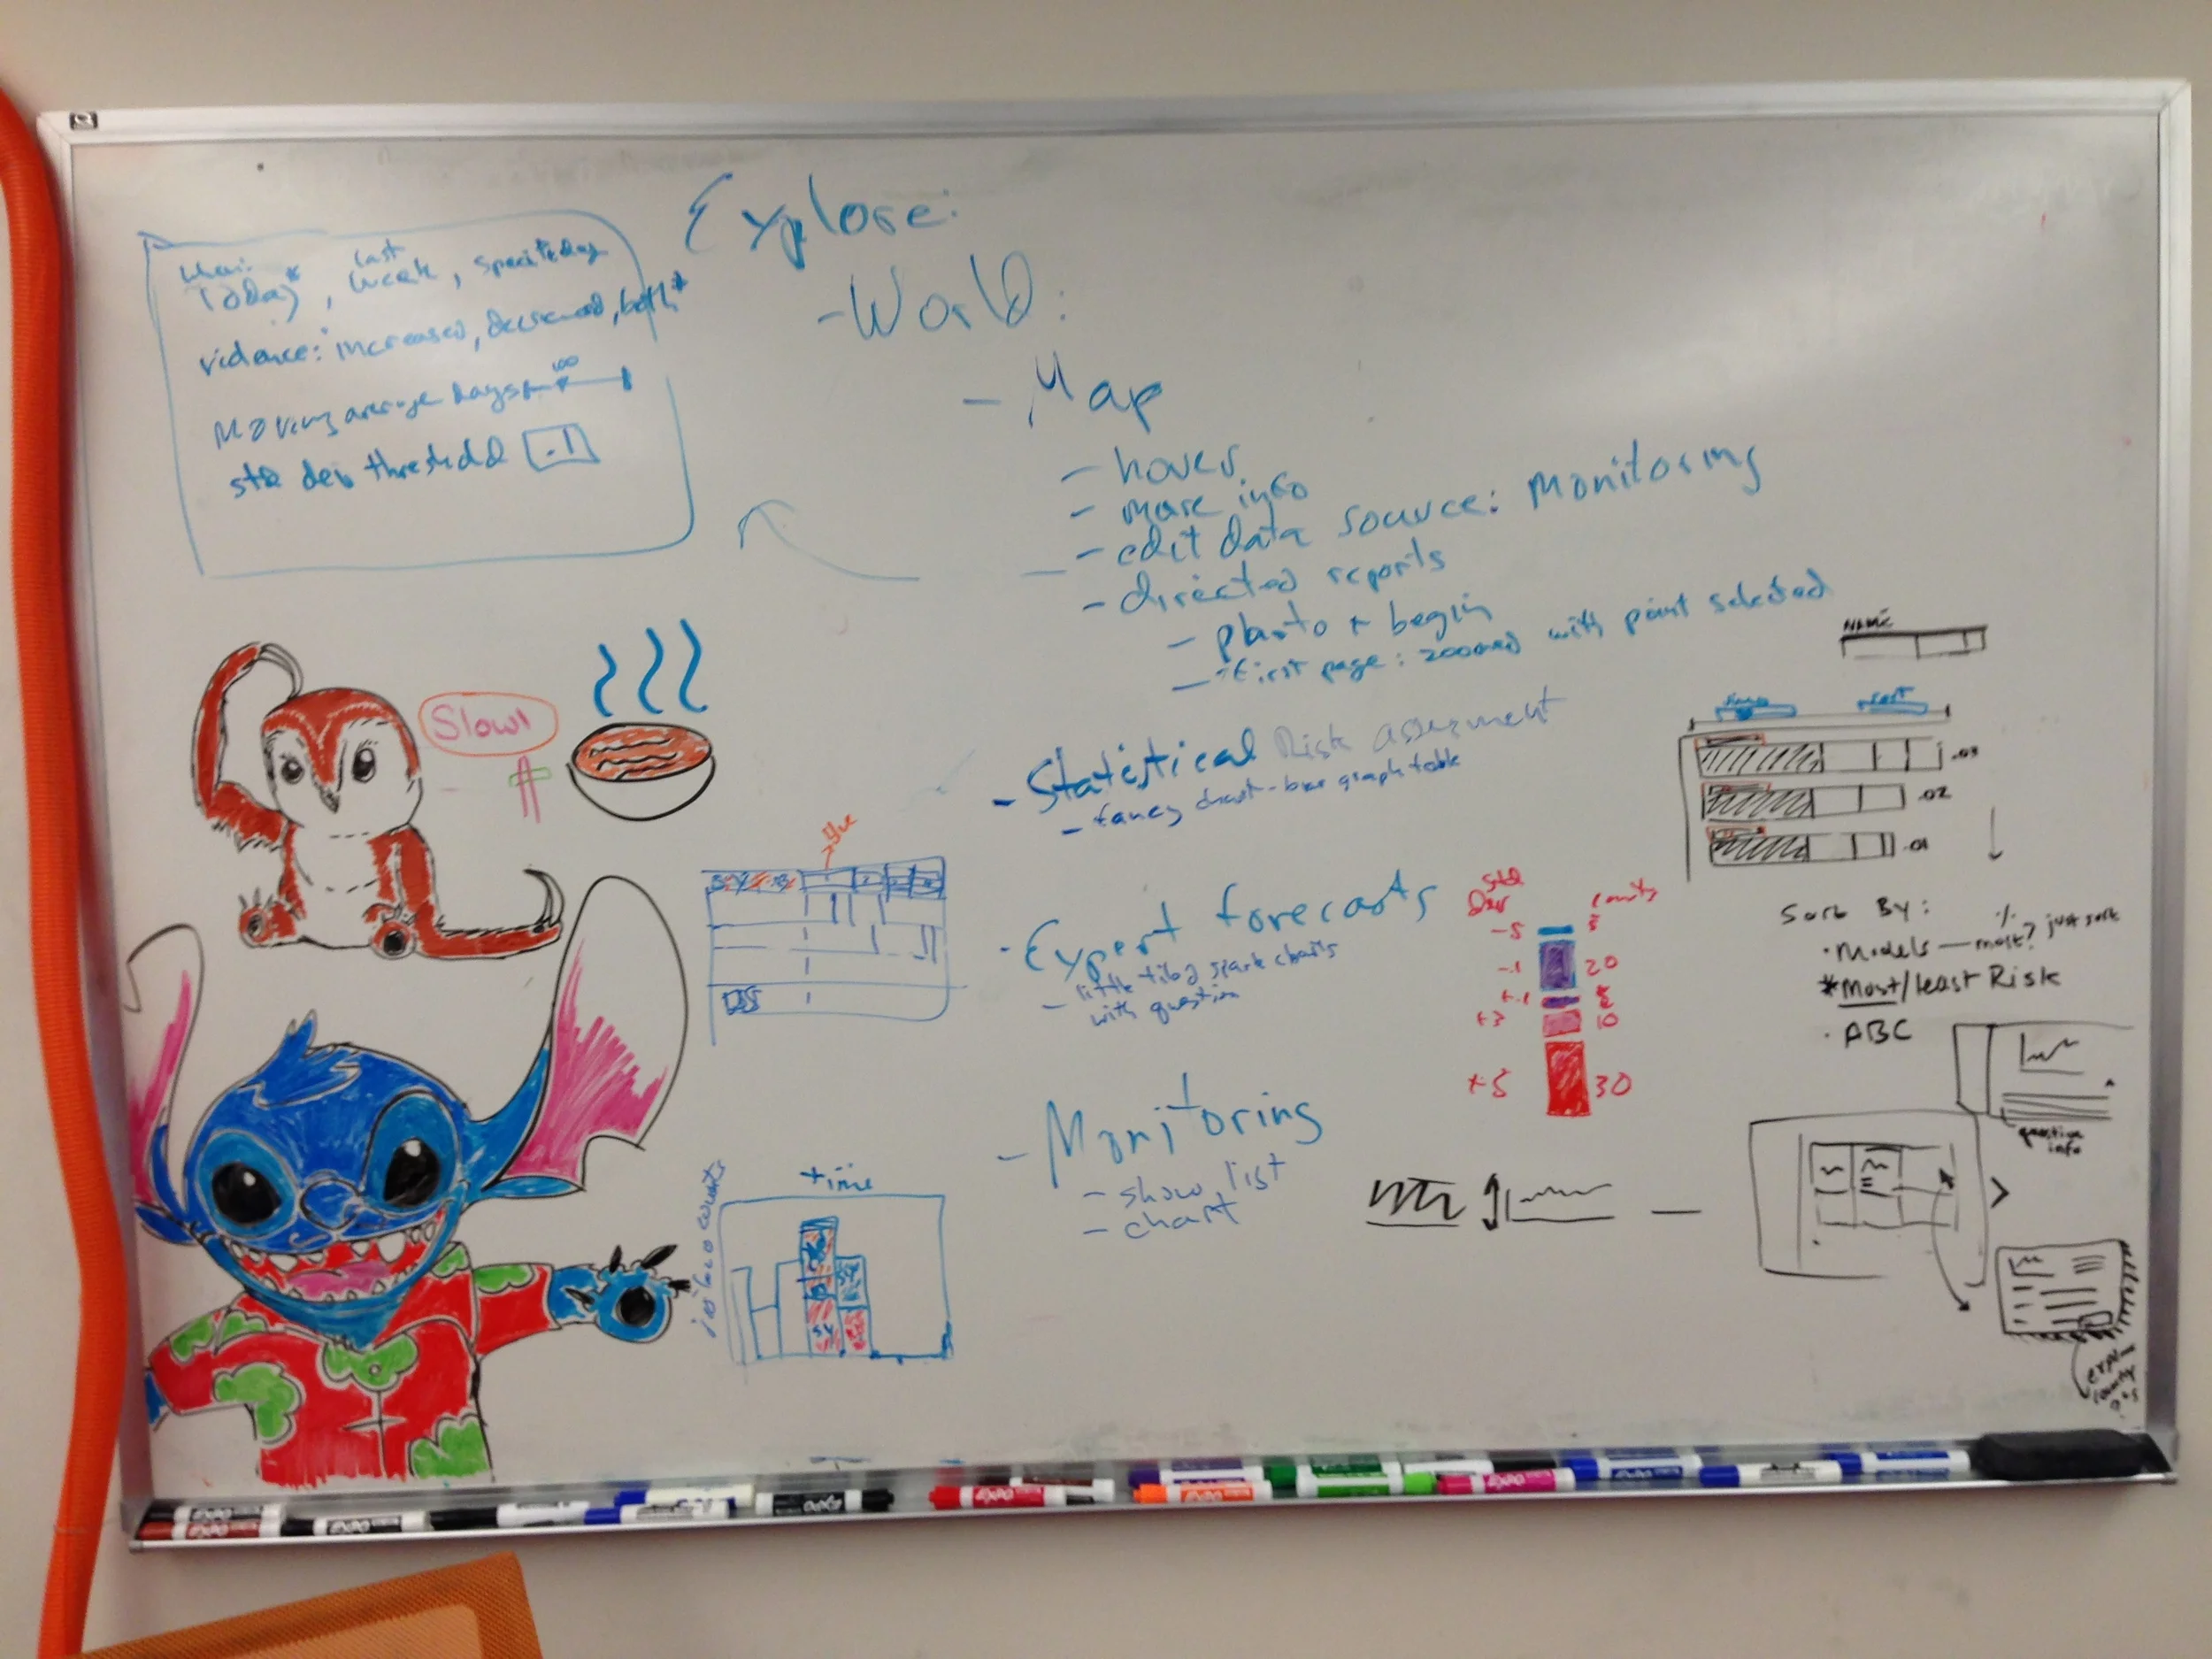 Explore:
- World:
- Map
- hover
- more info
- edit data source: Monitoring
- directed reports
- photo + begin
- first page: zoomed with point selected
- Statistical Risk assessment
- fancy chart - bar graph table
- Expert forecasts
- little tiled spark charts
with question
- Monitoring
- show list
- chart
Today*, last week, specific day
increased, decreased, both*
Moving average days
100
std dev threshold .1
Slow!
time
Std
Dev
counts
-5 5
-.1 20
+.1
+3 10
+5 30
NAME
sort
.03
.02
.01
Sort By:
• Models — most? % just sort
* Most/least Risk
• ABC
question
info
EXPO